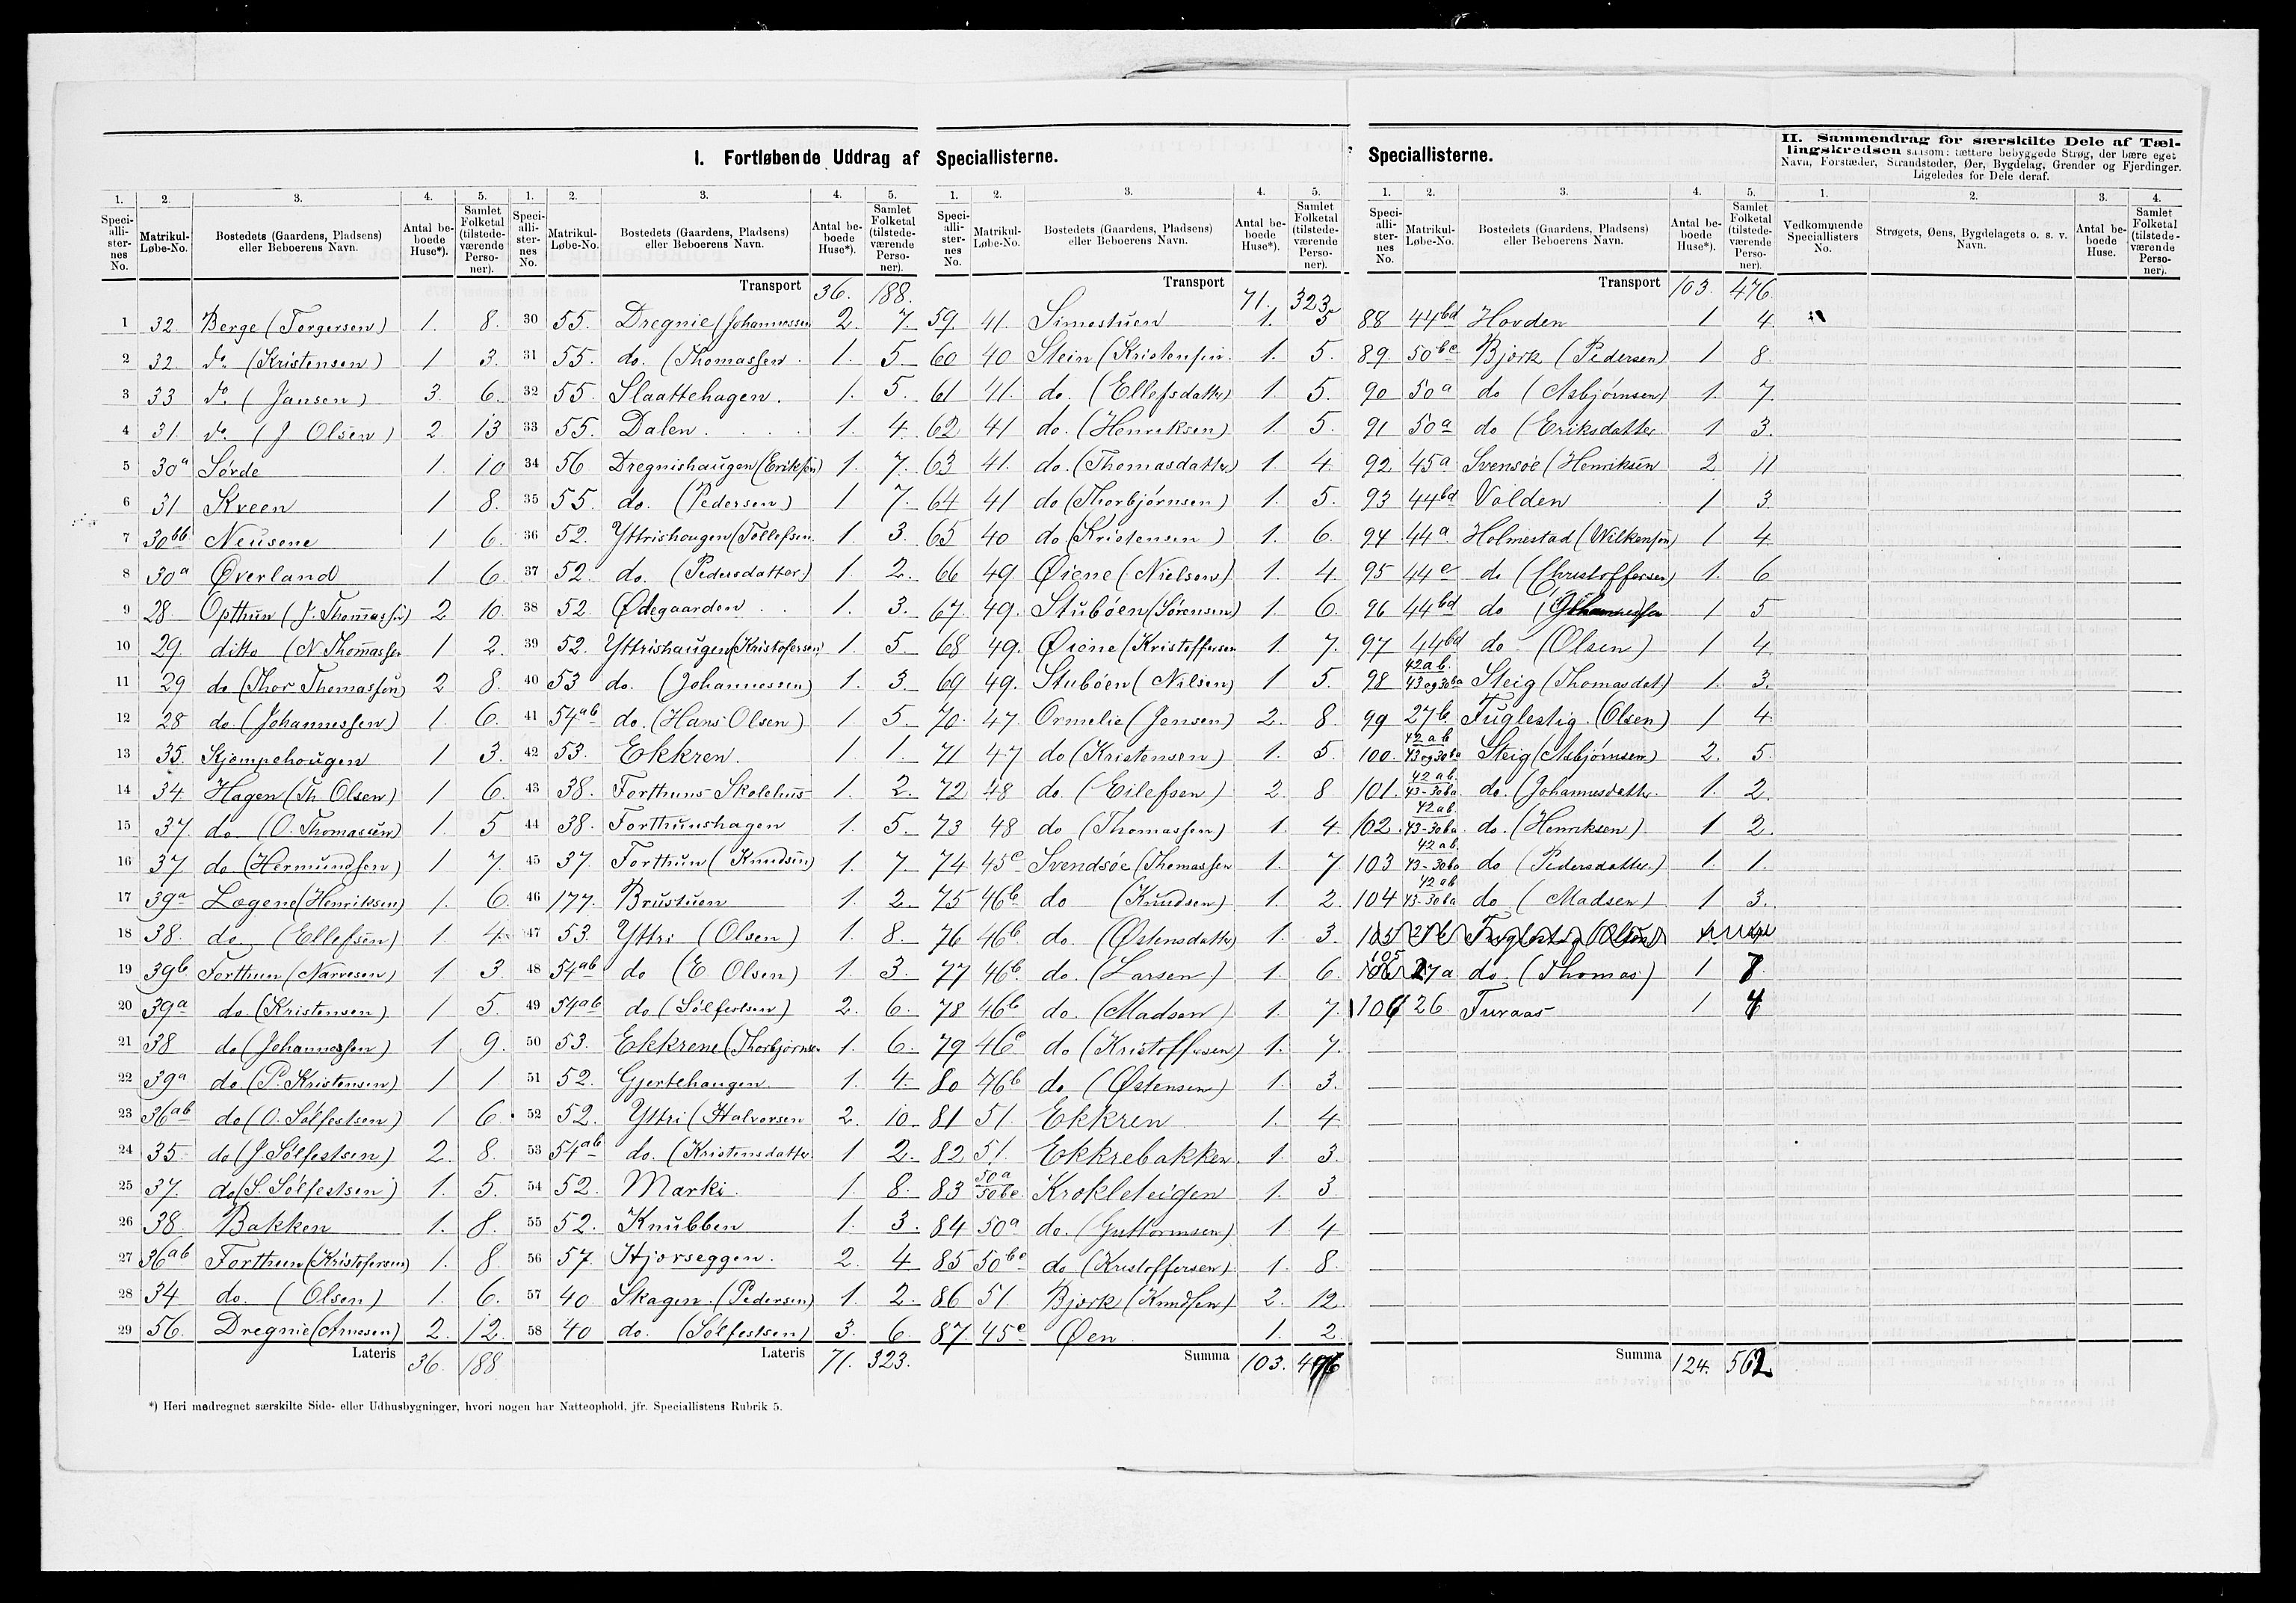 I. Fortløbende Uddrag af Speciallisterne.
Speciallisterne.
II. Sammendrag for særskilte Dele af Tællingskredsen saasom: tættere bebyggede Strøg, der bære eget Navn, Forstæder, Strandsteder, Øer, Bygdelag, Grender og Fjerdinger. Ligeledes for Dele deraf.
1. 2. 3. 4. 5.
Speciallisternes No. Matrikul-Løbe-No. Bostedets (Gaardens, Pladsens) eller Beboerens Navn. Antal beboede Huse*). Samlet Folketal (tilstedeværende Personer).
1 32. Berge (Torgersen) 1. 8.
2 32. do (Kristensen) 1 3.
3 33 do (Jansen) 3. 6.
4 31. do (J Olsen) 2 13
5 30a Sørde 1. 10
6 31 Kveen 1 8.
7 30bb Neusene 1 6.
8 30a Øverland 1 6.
9 28 Opthun (J. Thomassen) 2 10.
10 29. ditto (N Thomassen 1 2.
11 29 do (Thor Thomassen) 2 8.
12 28 do. (Johannessen) 1. 6.
13 35. Kjempehougen 1 3.
14 34 Hagen (Th. Olsen) 1 6.
15 37. do (O. Thomassen) 1. 5
16 37 do (Hermundsen) 1 7.
17 39a Løgene (Henriksen) 1. 6.
18 38. do (Ellefsen) 1. 4.
19 39b Forthun (Narvesen) 1 3.
20 39a do (Kristensen) 1 5.
21 38 do (Johannessen) 1 9.
22 39a do (P. Kristensen) 1 1
23 36ab do (O. Sølfestsen) 1 6.
24 35 do (J Sølfestsen) 2. 8.
25 37. do (S. Sølfestsen) 1. 5.
26 38. Bakken 1. 8.
27 36ab Forthun (Kristofersen) 1. 8.
28 34 do. (Olsen) 1. 6.
29 56. Dregnie (Arnesen) 2. 12.
Lateris 36. 188
1. 2. 3. 4. 5.
Speciallisternes No. Matrikul-Løbe-No. Bostedets (Gaardens, Pladsens) eller Beboerens Navn. Antal beboede Huse*). Samlet Folketal (tilstedeværende Personer).
Transport 36. 188.
30 55. Dregnie (Johannessen 2. 7.
31 55. do. (Thomassen 1. 5
32 55. Slaattehagen. 1. 5.
33 55. Dalen 1. 4.
34 56 Dregnishaugen (Eriksen) 1. 7.
35 55. do. (Pedersen) 1 7.
36 52. Yttrishougen (Tollefsen. 1. 3.
37 52. do. (Pedersdatter) 1. 2.
38 52. Ødegaarden 1. 3.
39 52. Yttrishaugen (Kristofersen) 1. 5
40 53 do. (Johannessen) 1. 3.
41 54ab do. (Hans Olsen) 1. 5.
42 53. Ekkren. 1. 1.
43 38. Forthuns Skolehus 1. 2.
44 38. Forthunshagen 1. 5.
45 37. Forthun (Knudsen) 1. 7.
46 177. Brustuen 1. 2.
47 53. Yttri (Olsen) 1. 8.
48 54ab do (E Olsen) 1. 3.
49 54ab do (Sølfestsen) 2. 6.
50 53. Ekkrene (Thorbjørnsen 1. 6.
51 52. Gjertehaugen. 1. 4.
52 52. Yttri (Halvorsen 2. 10
53 54ab do. (Kristensdatter 1 2.
54 52. Marki. 1. 8.
55 52. Knubben 1. 3.
56 57. Hjorseggen. 2. 4
57 40 Skagen. (Pedersen) 1. 2.
58 40 do. (Sølfestsen) 3. 6.
Lateris 71. 323.
1. 2. 3. 4. 5.
Speciallisternes No. Matrikul-Løbe-No. Bostedets (Gaardens, Pladsens) eller Beboerens Navn. Antal beboede Huse*). Samlet Folketal (tilstedeværende Personer).
Transport 71. 323
59. 41. Simestuen 1. 5
60 40 Stein (Kristensen. 1. 5.
61 41. do. (Ellefsdatter) 1. 5.
62 41 do. (Henriksen) 1. 5.
63 41. do. (Thomasdatter) 1. 4.
64 41 do (Thorbjørnsen) 1. 5.
65 40 do (Kristensen) 1. 6.
66 49 Øiene (Nielsen) 1. 4.
67. 49. Stubøen (Sørensen) 1. 6.
68 49. Øiene (Kristoffersen 1. 7.
69 49. Stubøen (Nilsen) 1 5.
70. 47. Ormelie (Jensen) 2. 8.
71 47 do (Kristensen) 1. 5.
72 48 do. (Eilefsen) 2. 8
73 48 do (Thomassen) 1. 4.
74 45c Svendsøe (Thomassen 1. 7
75 46b do (Knudsen) 1. 2.
76 46b do. (Østensdatter) 1. 3.
77 46b do. (Larsen) 1. 6.
78 46b do. (Madsen) 1. 7.
79 46c do (Kristoffersen) 1. 7.
80 46b do (Østensen) 1. 3.
81 51. Ekkren 1. 4
82 51. Ekkrebakken. 1. 3.
83 50a 50bc. Krokleteigen 1. 3
84 50a do. (Guttormsen) 1. 4
85 50bc do (Kristoffersen) 1. 8.
86 51. Bjørk (Knudsen) 2. 12.
87. 45c Øen 1. 2.
Summa 103. 476
1. 2. 3. 4. 5.
Speciallisternes No. Matrikul-Løbe-No. Bostedets (Gaardens, Pladsens) eller Beboerens Navn. Antal beboede Huse*). Samlet Folketal (tilstedeværende Personer).
Transport 103. 476.
88 44bd Hovden 1 4.
89. 50bc Bjork (Pedersen) 1 8.
90 50a do (Asbjørnsen) 1. 7.
91 50a do (Eriksdatter 1 3.
92. 45a Svensøe (Henriksen 2 11
93 44bd Volden 1 3.
94 44a Holmestad (Wilkensen) 1 4.
95 44c do (Christoffersen) 1. 6
96 44bd do (Johannessen 1 5
97 44bd do (Olsen) 1 4
98 42ab. 43 og 30ba Steig (Thomasdat) 1. 3.
99 27b. Fuglestig. (Olsen) 1 4.
100. 42ab 43 og 30ba Steig (Asbjørnsen) 2. 5.
101. 42ab. 43-30ba do. (Johannesdatter. 1. 2.
102. 42ab. 43-30ba. do. (Henriksen) 1 2.
103 42ab. 43-30ba do (Pedersdatter.) 1. 1.
104 42ab 43-30ba do (Madsen) 1 3.
105 27b Fuglestig (Olsen)
105 27a do. (Thomas) 1 8
106 26 Furaas 1 4
Summa 124. 562
1. 2. 3. 4.
Vedkommende Speciallisters No. Strøgets, Øens, Bygdelagets o. s. v. Navn. Antal beboede Huse. Samlet Folketal (tilstedeværende Personer).
*) Heri medregnet særskilte Side- eller Udhusbygninger, hvori nogen har Natteophold, jfr. Speciallistens Rubrik 5.